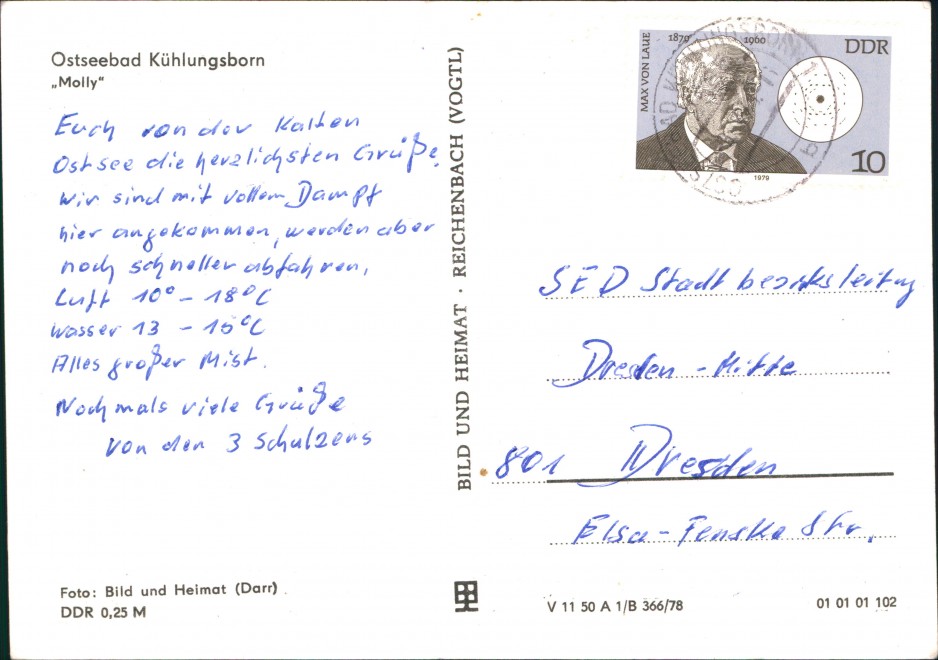 Ostseebad Kühlungsborn
„Molly"
Euch von der kalten
Ostsee die herzlichsten Grüße,
wir sind mit vollem Dampf
hier angekommen, werden aber
noch schneller abfahren,
Luft 10° - 18°C
Wasser 13 - 15°C
Alles großer Mist.
Nochmals viele Grüße
von den 3 Schulzens
Foto: Bild und Heimat (Darr)
DDR 0,25 M
BILD UND HEIMAT · REICHENBACH (VOGTL)
MAX VON LAUE
1879 1960
DDR
10
1979
SED Stadtbezirksleitung
Dresden - Mitte
801 Dresden
Elsa-Fenske Str.
V 11 50 A 1/B 366/78
01 01 01 102